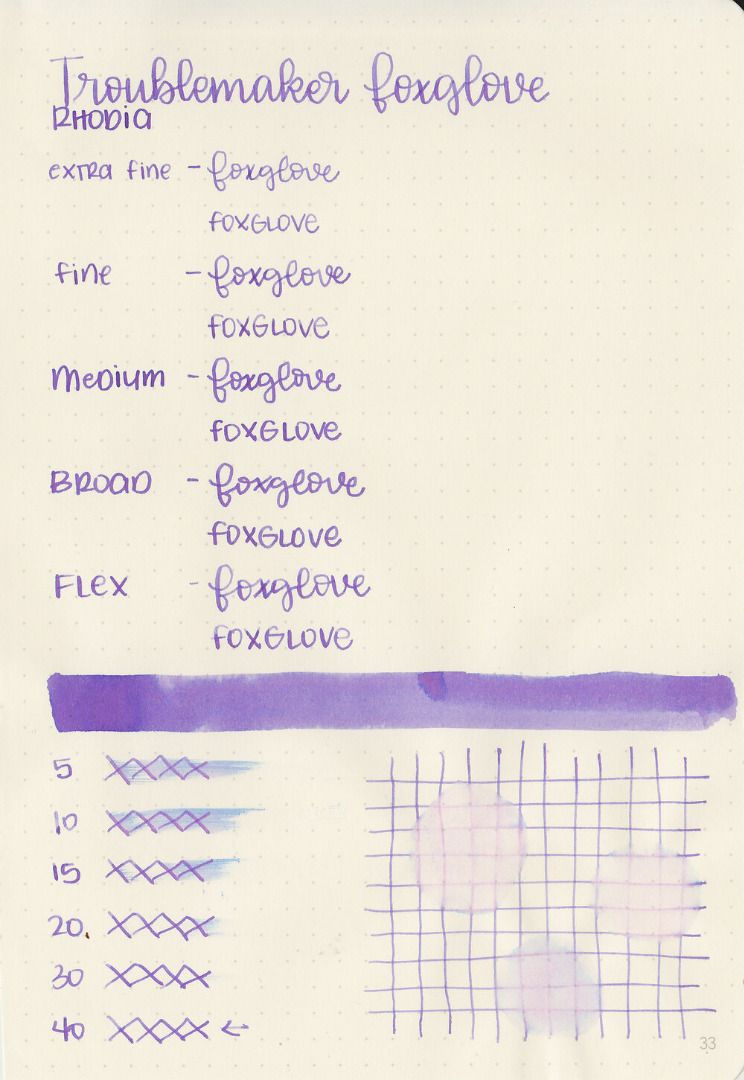 Troublemaker foxglove
RHODIA
extra fine - foxglove
FOXGLOVE
fine - foxglove
FOXGLOVE
Medium - foxglove
FOXGLOVE
BROAD - foxglove
FOXGLOVE
FLEX - foxglove
FOXGLOVE
5 XXXX
10 XXXX
15 XXXX
20. XXXX
30 XXXX
40 XXXX ←
33